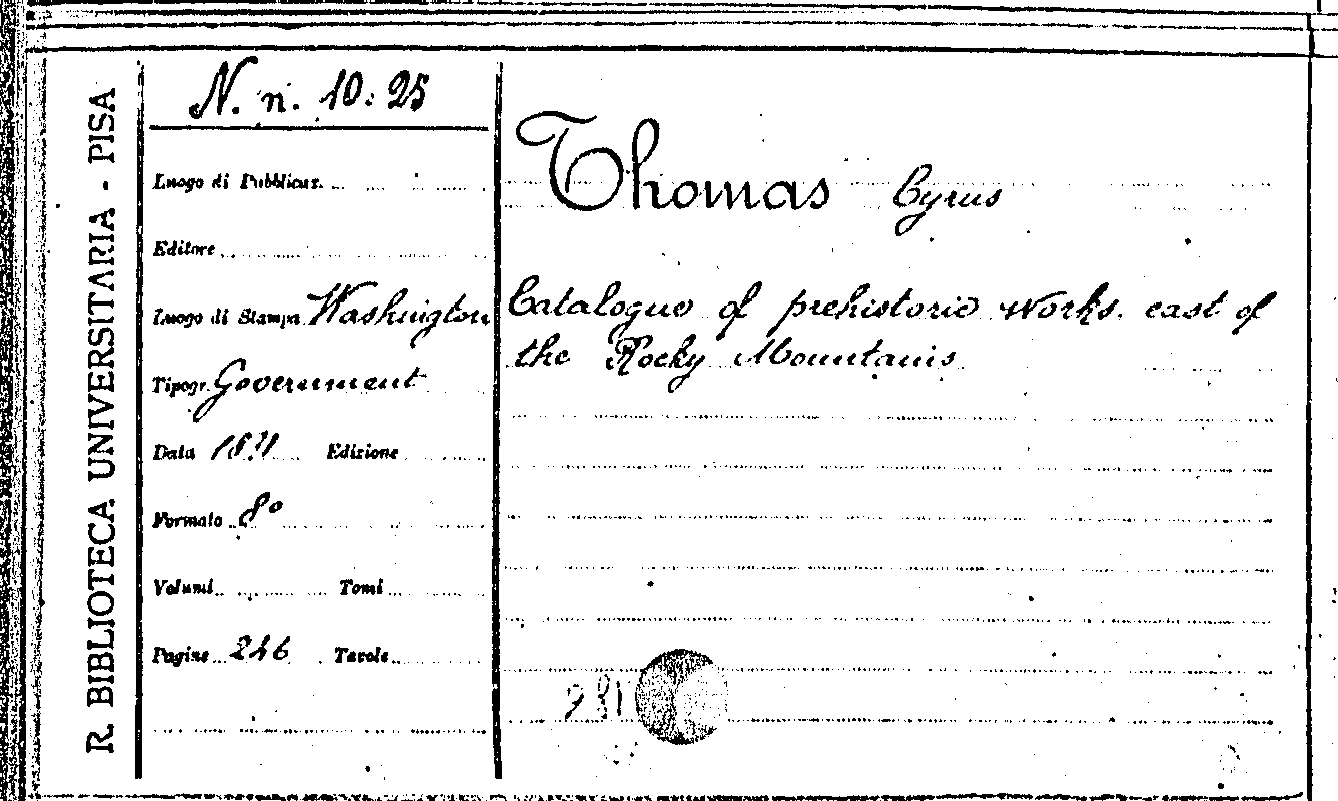 R. BIBLIOTECA UNIVERSITARIA - PISA
N. n. 10. 25
Luogo di Pubblicaz.
Editore
Luogo di Stampa Washington
Tipogr. Government
Data
Edizione
Formato 8°
Volumi
Tomi
Pagine 246
Tavole
Thomas Cyrus
Catalogue of prehistoric works. east of
the Rocky Mountains